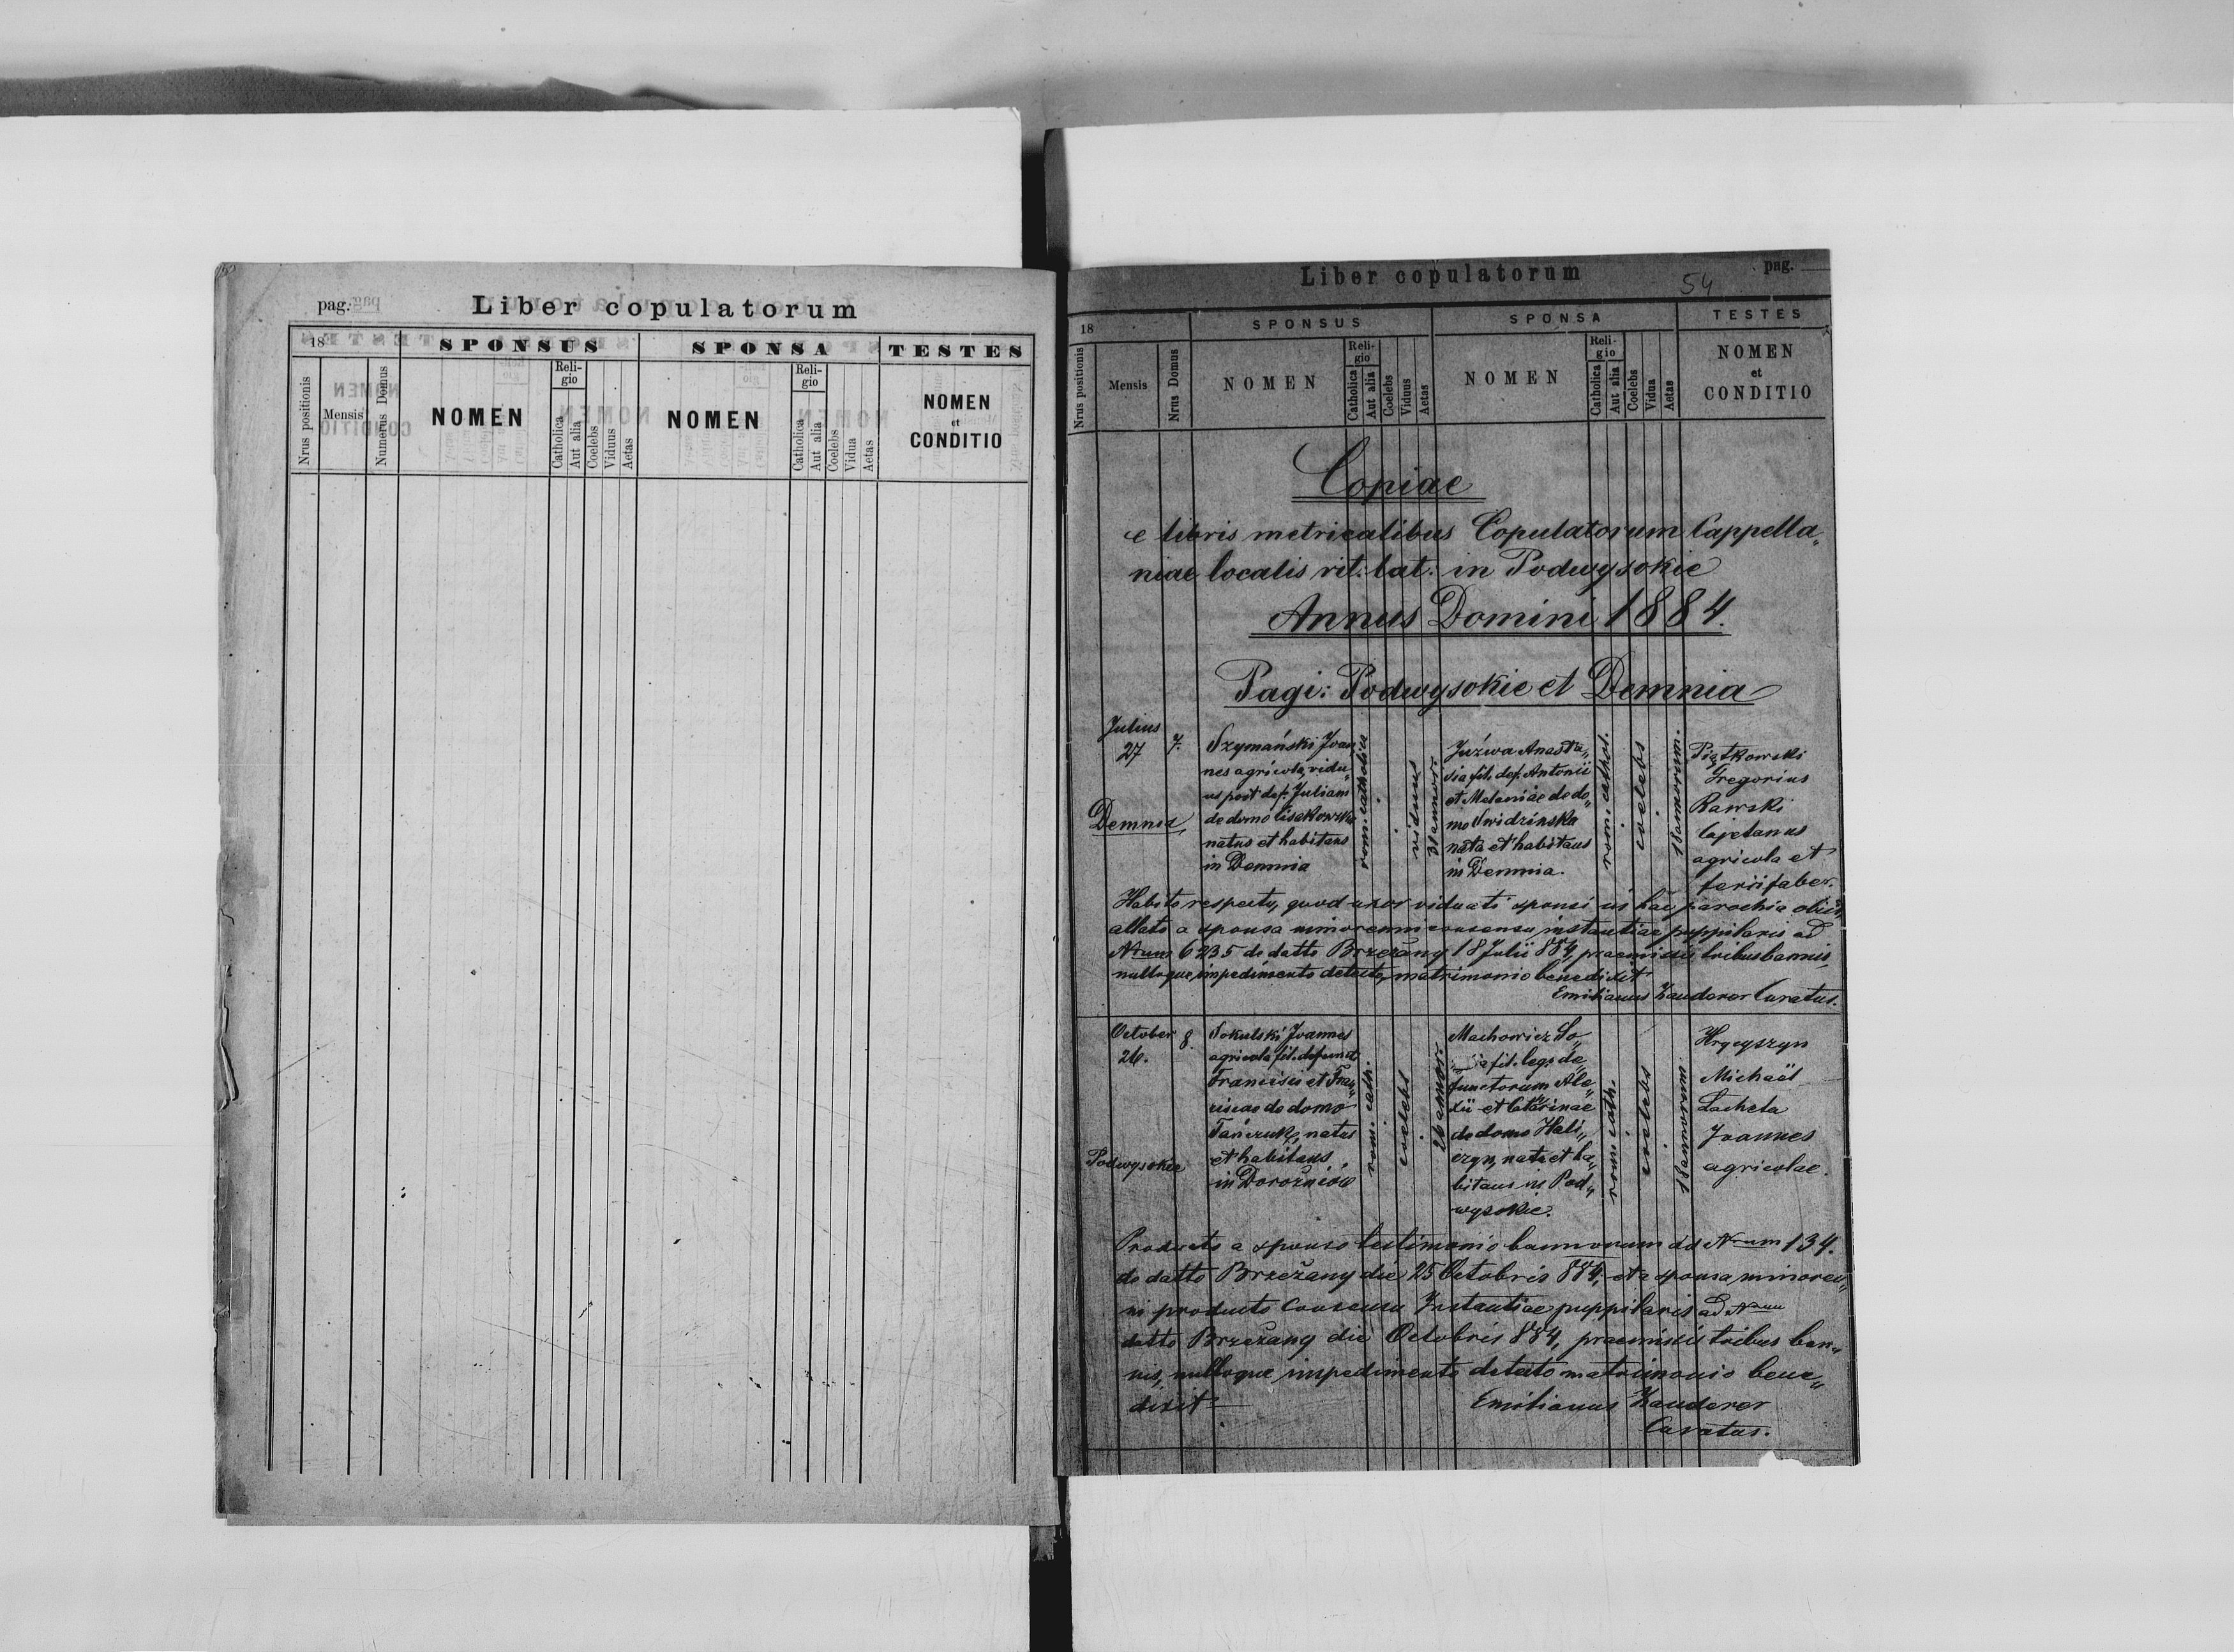 pag. Liber copulatorum
18 SPONSUS SPONSA TESTES
Nrus positionis Mensis Numerus Domus NOMEN Reli-gio Catholica Aut alia Coelebs Viduus Aetas NOMEN Reli-gio Catholica Aut alia Coelebs Vidua Aetas NOMEN et CONDITIO
Liber copulatorum 54 pag.
18 SPONSUS SPONSA TESTES
Nrus positionis Mensis Nrus Domus NOMEN Reli-gio Catholica Aut alia Coelebs Viduus Aetas NOMEN Reli-gio Catholica Aut alia Coelebs Vidua Aetas NOMEN et CONDITIO
Copiae
e libris metricalibus Copulatorum Cappella„
niae localis rit: lat: in Podwysokie
Annus Domini 1884.
Pagi: Podwysokie et Demnia
Julius
27
7.
Demnia
Szymański Joan
nes agricola, vidu„
us post def: Juliam
de domo Lisakowska
natus et habitans
in Demnia
rom. catholica
viduus
31 annor.
Juźwa Anasta„
sia fil. def. Antonii
et Melaniae de do„
mo Swidzińska
nata et habitans
in Demnia.
rom. cathol.
coelebs
18 annorum.
Piątkowski
Gregorius
Rawski
Cajetanus
agricola et
ferii faber.
Habito respectu, quod uxor viduati sponsi in hac parochia obiit,
allato a sponsa minorenni consensu instantiae puppilaris ad
Nrum 6235 de datto Brzeżany 18 Julii 884, praemissis tribus bannis,
nulloque impedimento detecto, matrimonio benedixit
Emilianus Zauderer Curatus.
October
26.
8.
Podwysokie
Sokulski Joannes
agricola fil. defunct
Francisci et Fran„
ciscae de domo
Tańczuk, natus
et habitans
in Dorożniów
rom. cath.
coelebs
26 annor.
Machowicz So„
fia fil. leg. de„
functorum Ale„
xii et Catarinae
de domo Hali„
czyn, nata et ha„
bitans in Pod„
wysokie.
rom. cath.
coelebs
18 annorum
Hrycyszyn
Michaël
Lacheta
Joannes
agricolae.
Producto a sponso testimonio bannorum dd Nrum 134.
de datto Brzeżany die 25 Octobris 884, et a sponsa minoren„
ni producto Consensu Instantiae puppilaris ad Nrum
datto Brzeżany die Octobris 884, praemissis tribus ban„
nis, nulloque impedimento detecto matrimonio bene„
dixit
Emilianus Zauderer
Curatus.